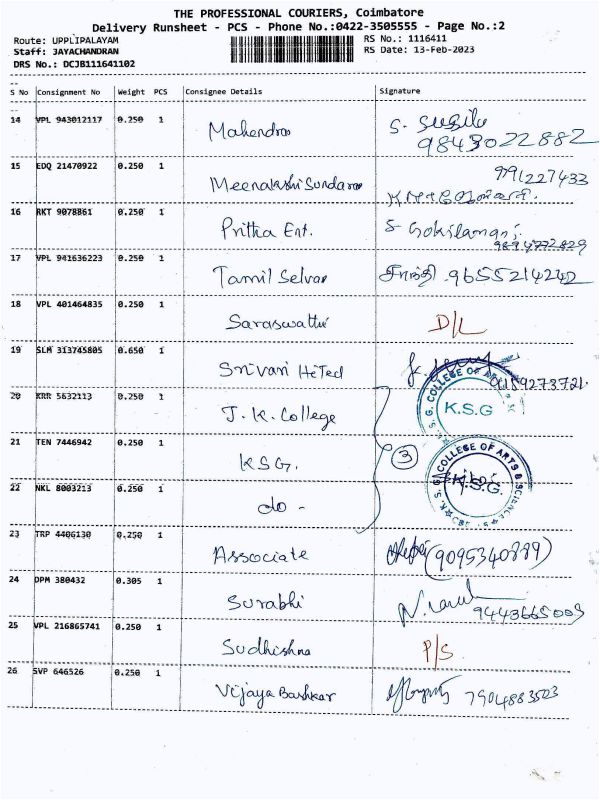 THE PROFESSIONAL COURIERS, Coimbatore
Delivery Runsheet - PCS - Phone No.:0422-3505555 - Page No.:2
Route: UPPLIPALAYAM RS No.: 1116411
Staff: JAYACHANDRAN RS Date: 13-Feb-2023
DRS No.: DCJB111641102
S No Consignment No Weight PCS Consignee Details Signature
14 VPL 943012117 0.250 1 Mahendran S. Susila
9843022882
15 EDQ 21470922 0.250 1 Meenakshi Sundaram 991227433
16 RKT 9078861 0.250 1 Pritha Ent. S Gokilamani
9894772829
17 VPL 941636223 0.250 1 Tamil Selvan சாந்தி 9655214242
18 VPL 401464835 0.250 1 Saraswathi D/L
19 SLM 313745805 0.650 1 Srivari HiTed
9159273721
20 KRR 5632113 0.250 1 J.K. College K.S.G
21 TEN 7446942 0.250 1 KSG. 3
S. G. COLLEGE OF ARTS & SCIENCE
22 NKL 8003213 0.250 1 do - K.S.G.
23 TRP 4406130 0.250 1 Associate (9095340889)
24 DPM 380432 0.305 1 Surabhi
9443665003
25 VPL 216865741 0.250 1 Sudhishna P/S
26 SVP 646526 0.250 1 Vijaya Bashkar 7904883503